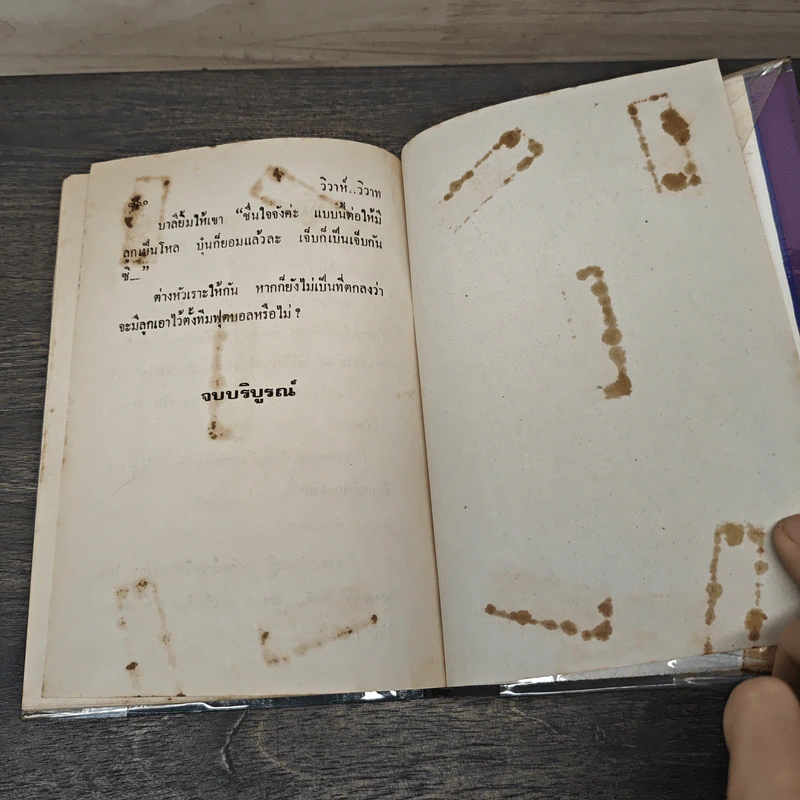 วิวาห์..วิวาท
๑๑๐
บาลียิ้มให้เขา “ชื่นใจจังค่ะ แบบนี้ต่อให้มี
ลูกเป็นโหล บุ๋นก็ยอมแล้วละ เจ็บก็เป็นเจ็บกัน
ซิ....”
ต่างหัวเราะให้กัน หากก็ยังไม่เป็นที่ตกลงว่า
จะมีลูกเอาไว้ตั้งทีมฟุตบอลหรือไม่ ?
จบบริบูรณ์